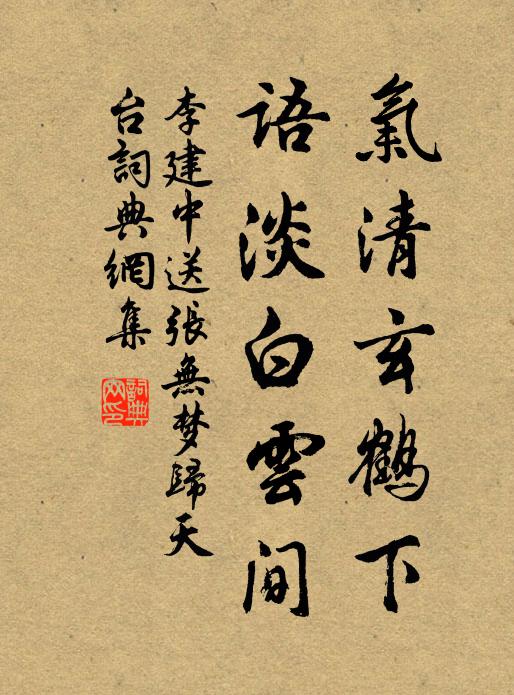 氣清玄鶴下
語淡白雲間
李建中送張無梦歸天
台詞典網集
詞典